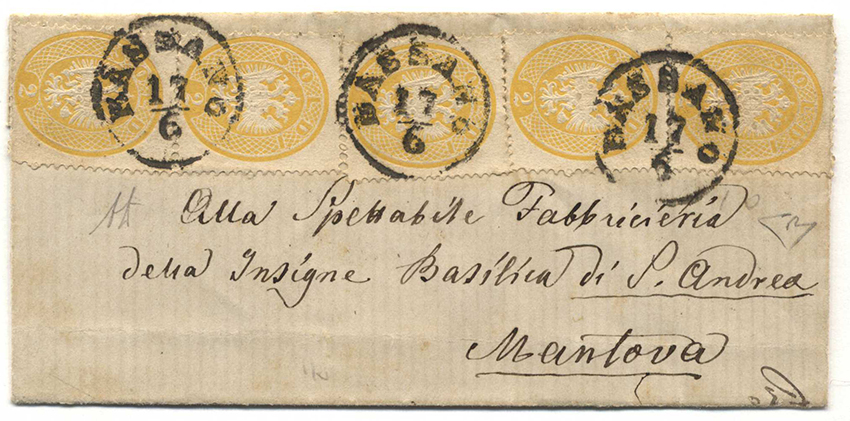 2 SOLDI
BASSANO
17
6
BASSANO
17
6
BASSANO
17
6
Alla Spettabile Fabbricieria
della Insigne Basilica di S. Andrea
Mantova